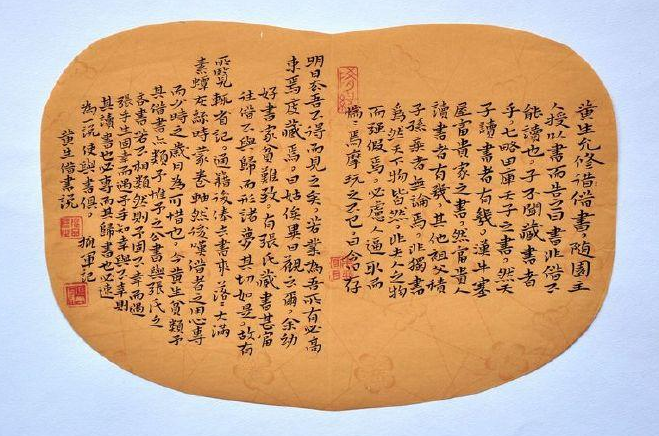 黃生允修借借書。隨園主
人授以書而告之曰書非借不
能讀也。子不聞藏書者
乎七略四庫天子之書。然天
子讀書者有幾。漢牛塞
屋富貴家之書。然富貴人
讀書者有幾。其他祖父積
子孫棄者無論焉。非獨書
為然天下物皆然。非夫人之物
而强假焉。必慮人逼取而
惴。焉摩玩之不已。曰今日存
明日去吾不得而見之矣。若業為吾所有必高
束焉庋藏焉。曰姑俟異日觀云爾。余幼
好書家貧難致。有張氏藏書甚富
往借不與歸而形諸夢其切如是。故有
所覽輒省記通籍後俸去書來落。大滿
素蟫灰絲時蒙卷軸然後嘆借者之用心專
而少時之歲月為可惜也。今黃生貧類予
其借書亦類予惟予之公書與張氏之
吝書若不相類然則予固不幸而遇
張乎生固幸而遇予乎知幸與不幸則
其讀書也必專而其歸書也必速
為一說使與書俱。
黃生借書說 記